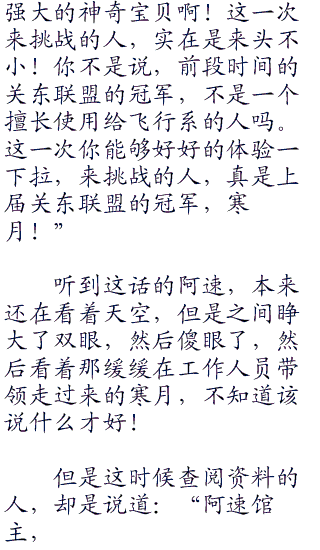 强大的神奇宝贝啊！这一次
来挑战的人，实在是来头不
小！你不是说，前段时间的
关东联盟的冠军，不是一个
擅长使用给飞行系的人吗。
这一次你能够好好的体验一
下拉，来挑战的人，真是上
届关东联盟的冠军，寒
月！”
听到这话的阿速，本来
还在看着天空，但是之间睁
大了双眼，然后傻眼了，然
后看着那缓缓在工作人员带
领走过来的寒月，不知道该
说什么才好！
但是这时候查阅资料的
人，却是说道：“阿速馆
主，